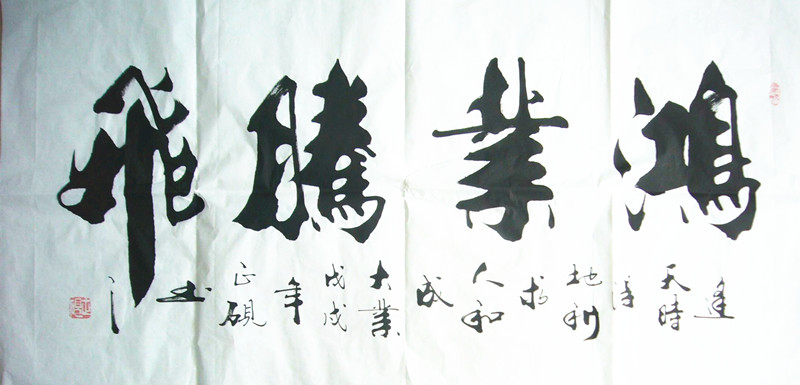 鴻業騰飛
逢天時得地利求人和成大業戊戌年正硯书